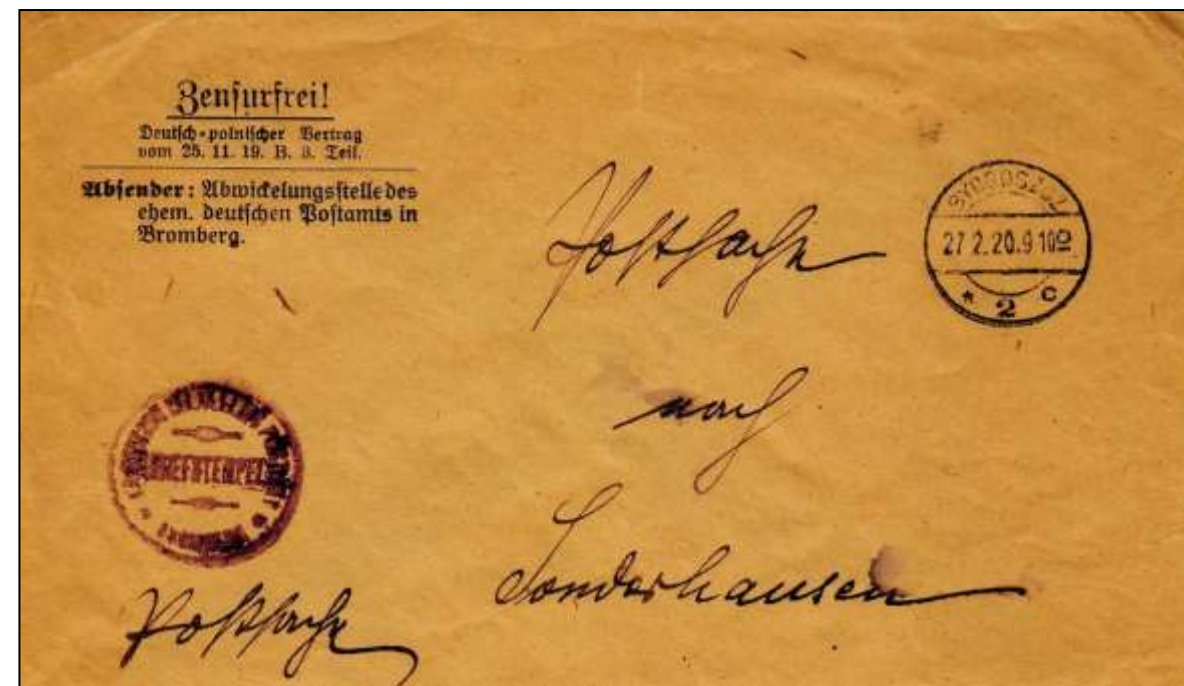 Zensurfrei!
Deutsch-polnischer Vertrag
vom 25. 11. 19. B. 3. Teil.
Absender: Abwickelungsstelle des
ehem. deutschen Postamts in
Bromberg.
Postsache
BYDGOSZCZ
27 2.20.9 10⁰
* 2 c
nach
BRIEFSTEMPEL
Sondershausen
Postsache